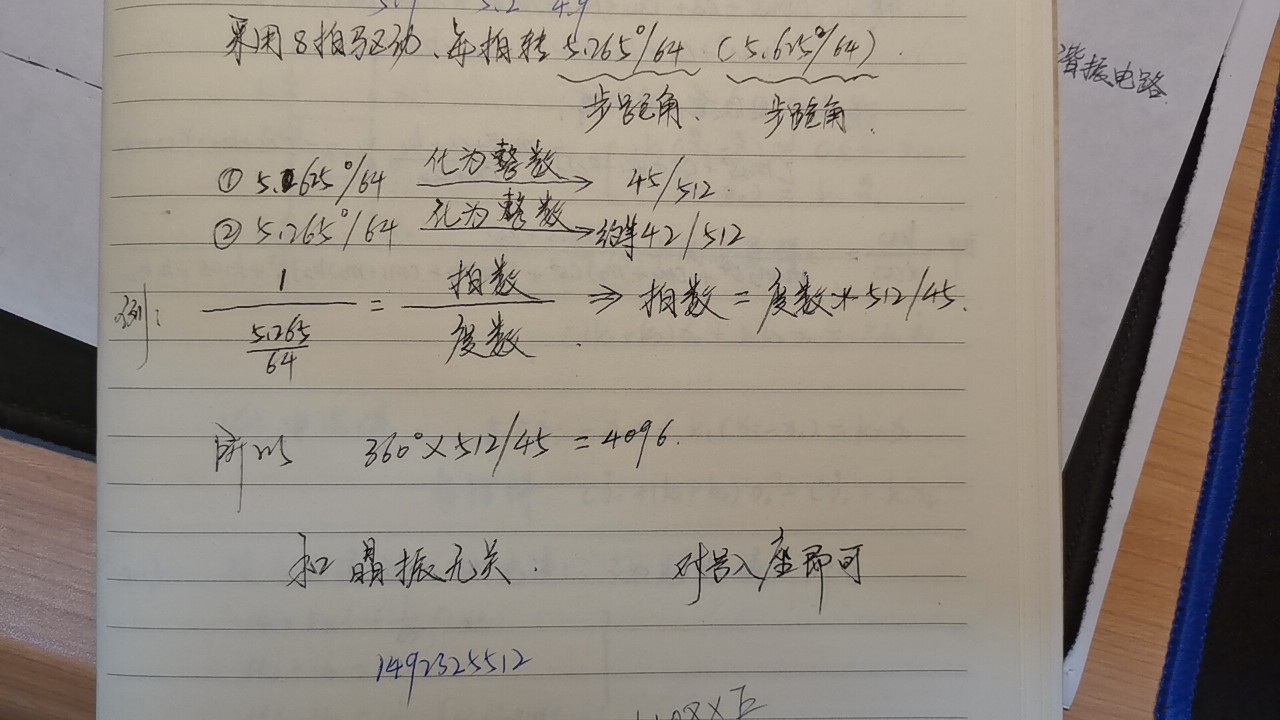 5.2 4.9
采用8拍驱动、每拍转 5.265°/64 (5.625°/64).
谐振电路
步距角. 步距角.
① 5.625°/64 化为整数 45/512.
② 5.265°/64 化为整数 约等42/512
例: 1 / (5.265/64) = 拍数/度数. ⇒ 拍数 = 度数*512/45.
所以 360°×512/45 = 4096.
和晶振无关. 对号入座即可
1492325512